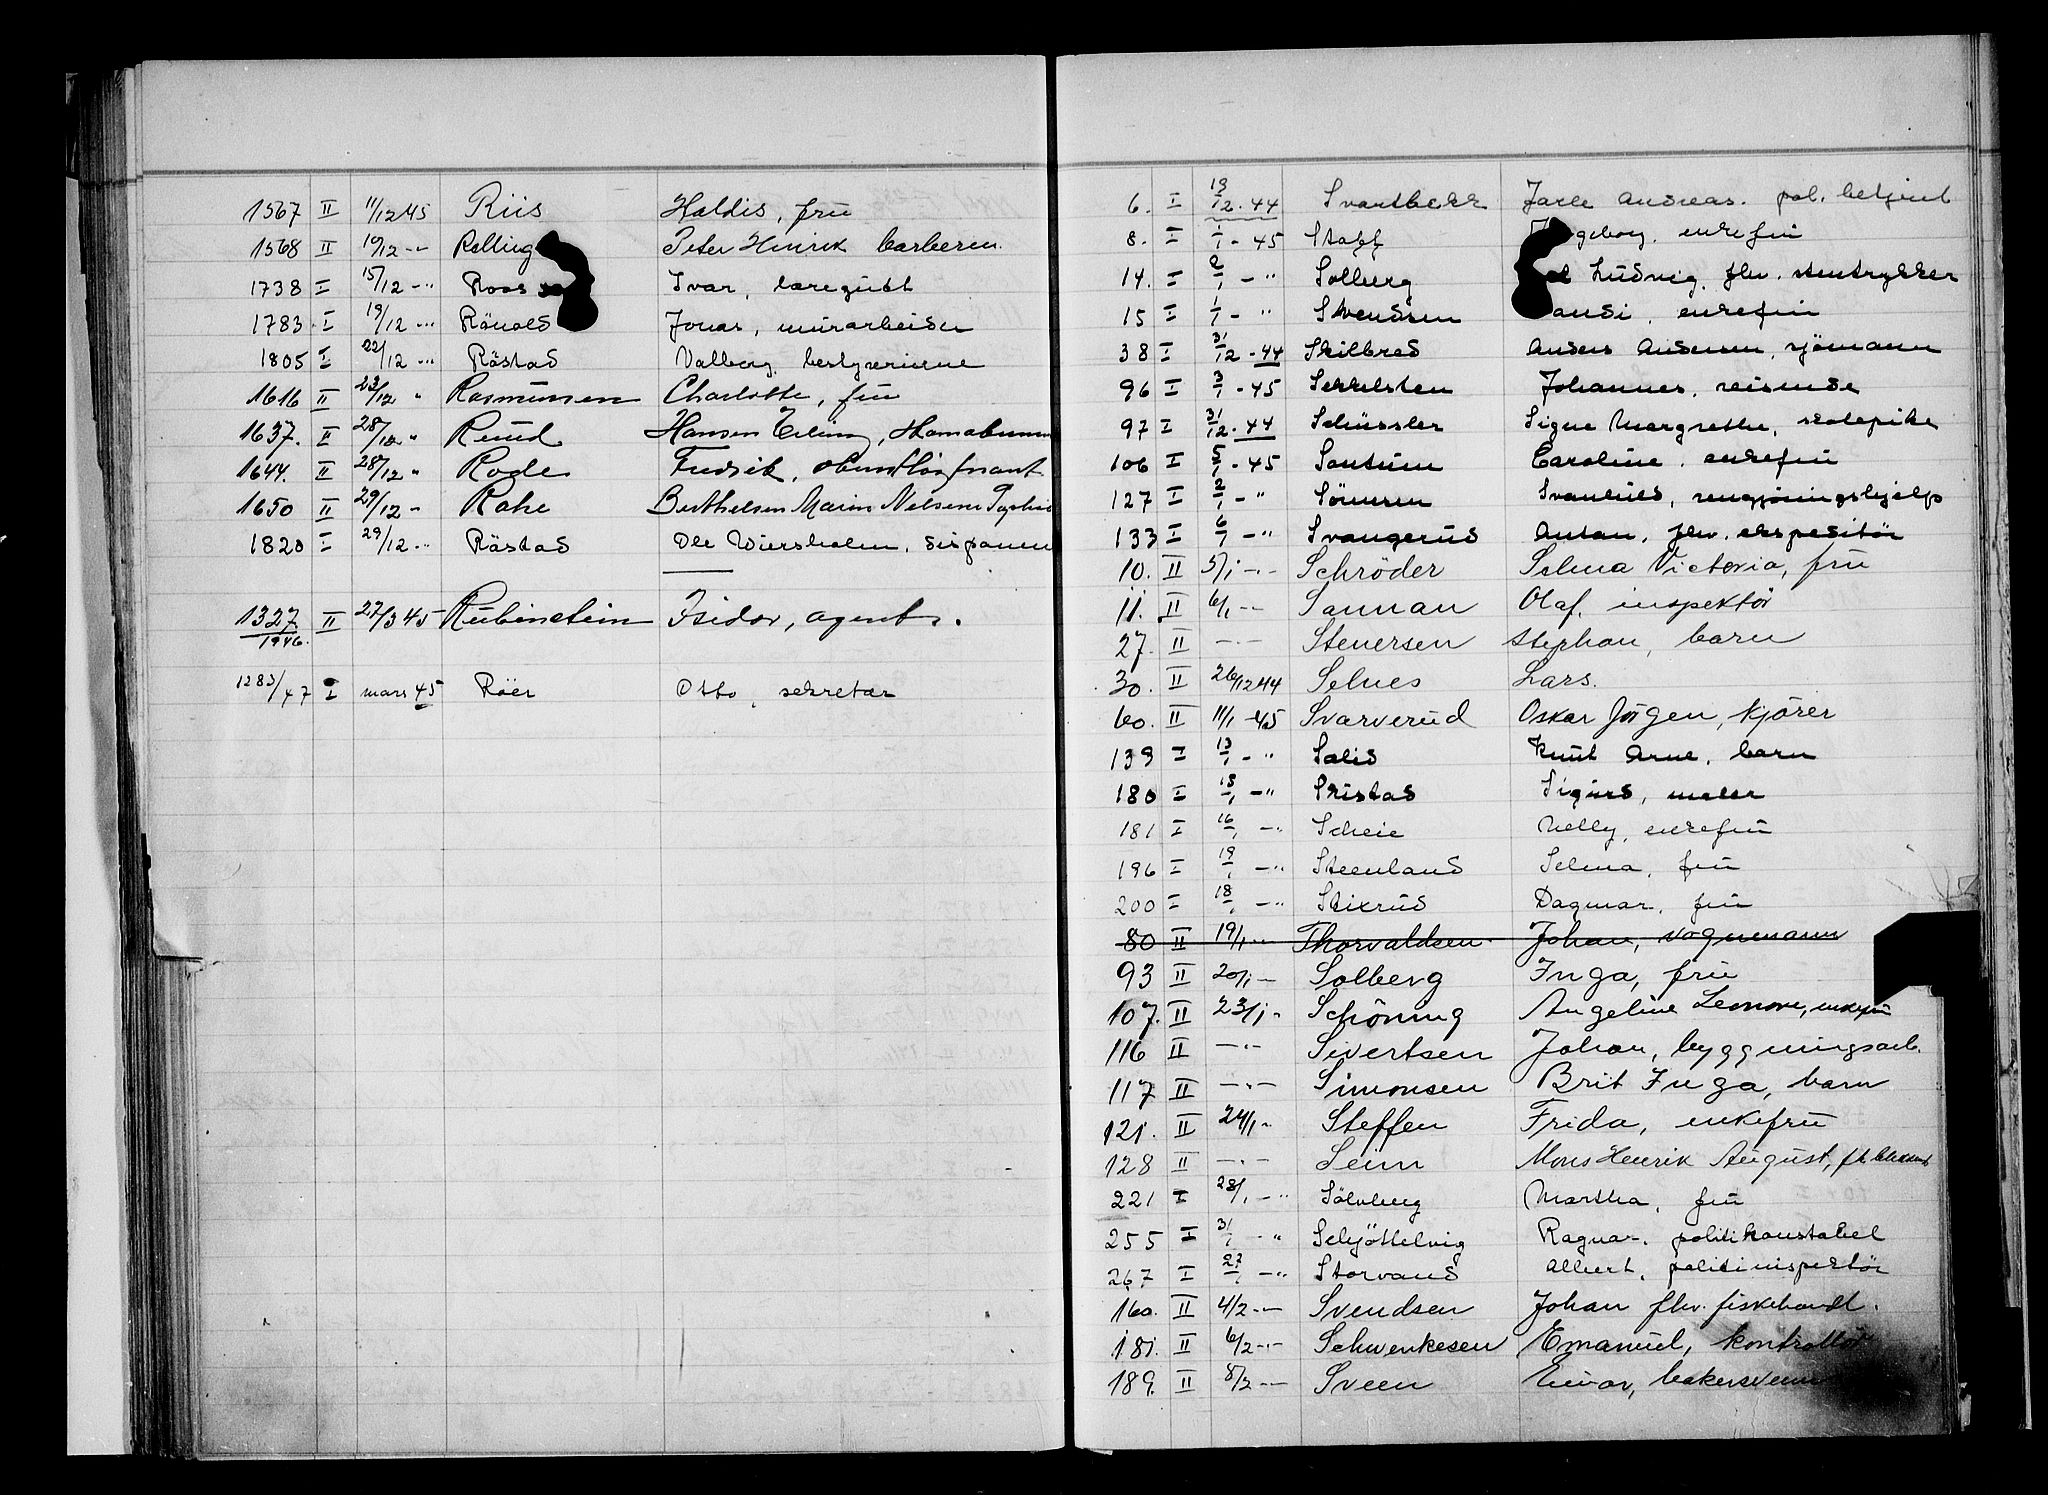 1567 II 11/12 45 Riis Haldis, frü
1568 II 10/12 -"- Rolling Peter Hinrik barberm.
1738 I 15/12 -"- Roos Ivar, laregütt
1783 I 19/12 -"- Rönold Jonas, mürarbeider
1805 I 22/12 -"- Röstad Valborg, bestyrerinne
1616 II 23/12 " Rasmüssen Charlotte, frü
1637. II 28/12 " Rüüd Hansen Erling,
1644. II 28/12 " Rode Fredrik,
1650 II 29/12 - Rohe Berthelsen Marin Nielsine Sophie
1820 I 29/12 -"- Råstad Ole Wiersholm, disponent
1327 1946. II 27/3 45 Rübinstein Isidor, agent.
1283/47 I mars 45 Röer Otto, sekretær
6. I 19/12-44 Svartbekk Jarle Andreas. pol. betjent
8. I 1/1-45 Staff geborg. enkefrü
14. I 2/1 -" Solberg Lüdvig, fhv. stentrykker
15 I 1/1 -" Svendsen andi, enkefrü
38 I 31/12-44 Skilbred Anders Andersen, sjömann
96 I 3/1-45 Sekkelsten Johannes, reisende
97 I 31/12-44 Schüssler Signe Margrethe, skolepike
106 I 5/1-45 Santüm Caroline, enkefrü
127 I 2/1 -" Sörensen Svanhild, rengjöringshjelp
133 I 6/1 -" Svangerüd Anton, fhv. ekspeditör
10. II 5/1 -"- Schröder Selma Victoria, frü
11. II 6/1 -- Sannan Olaf, inspektör
27. II -"- Stenersen Stephan, barn
30. II 26/12 44 Selnes Lars.
60. II 11/1-45 Svarverüd Oskar Jörgen, kjörer
139 I 13/1 -" Solid Knüt Arne, barn
180 I 15/1 -" Skistad Sigürd, maler
181 I 16/1 -" Scheie Nelly, enkefrü
196 I 19/1 -" Steenland Selma, frü
200 I 18/1 -" Skixrüd Dagmar, frü
80 II 19/1 -"- Thorvaldsen Johan, vognmann
93 II 20/1 -- Solberg Inga, frü
107. II 23/1 - Schöning Angeline Leonore, enkefrü
116 II -"- Sivertsen Johan, byggningsarb.
117 II -"- Simonsen Brit Inga, barn
121. II 24/1 - Steffen Frida, enkefrü
128 II -"- Seim Mons Henrik Aügüst,
221 I 28/1 -" Sölvberg Martha, frü
255 I 31/1 -" Schjöttelvig Ragnar, politikonstabel
267 I 27/1 -" Storvand Albert, politiinspektör
160. II 4/2 -- Svendsen Johan fhv. fiskehandl.
181. II 6/2 -"- Schwenkesen Emanüel, kontrollör
189. II 8/2 -- Sveen Einar, bakersvenn